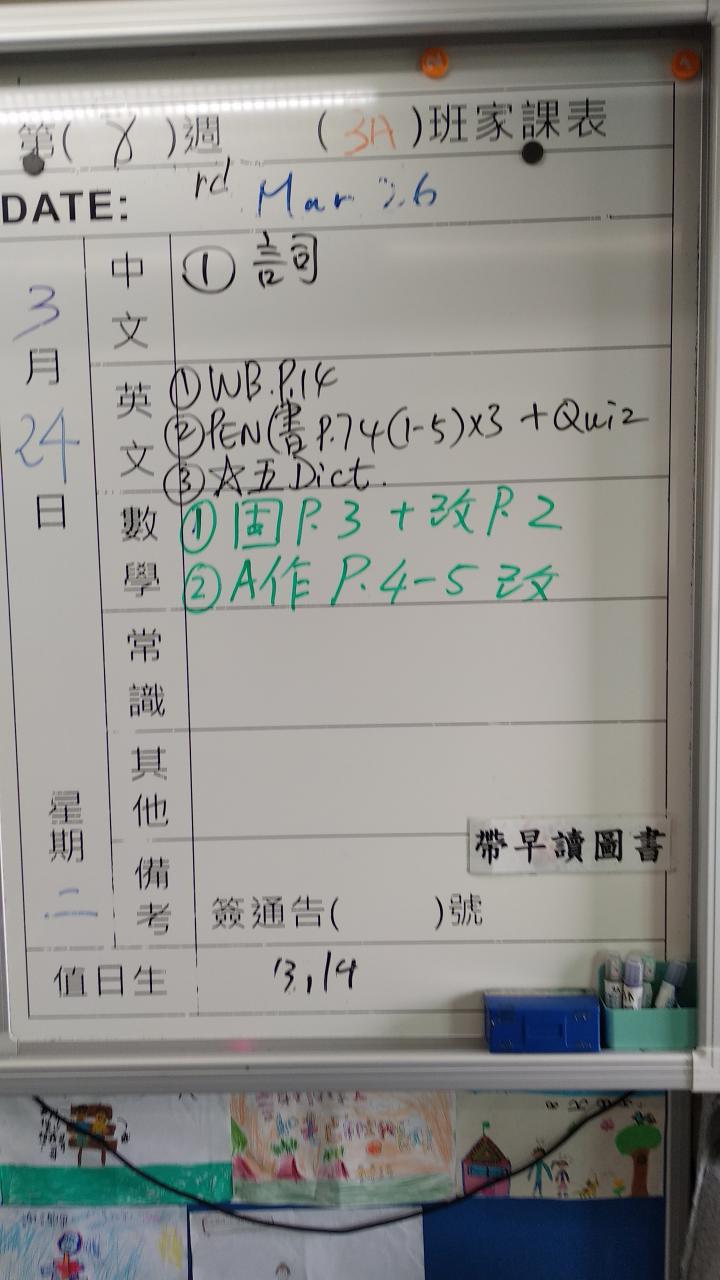 第( 8 )週 ( 3A )班家課表
DATE: rd Mar 26
3月24日 星期二
中文 ① 言司
英文 ① WB.P.14
② PEN(書P.74(1-5)x3 + Quiz
③ ☆五 Dict.
數學 ① 固 P.3 + 改 P.2
② A作 P.4-5 改
常識
其他
帶早讀圖書
備考 簽通告( )號
值日生 13,14